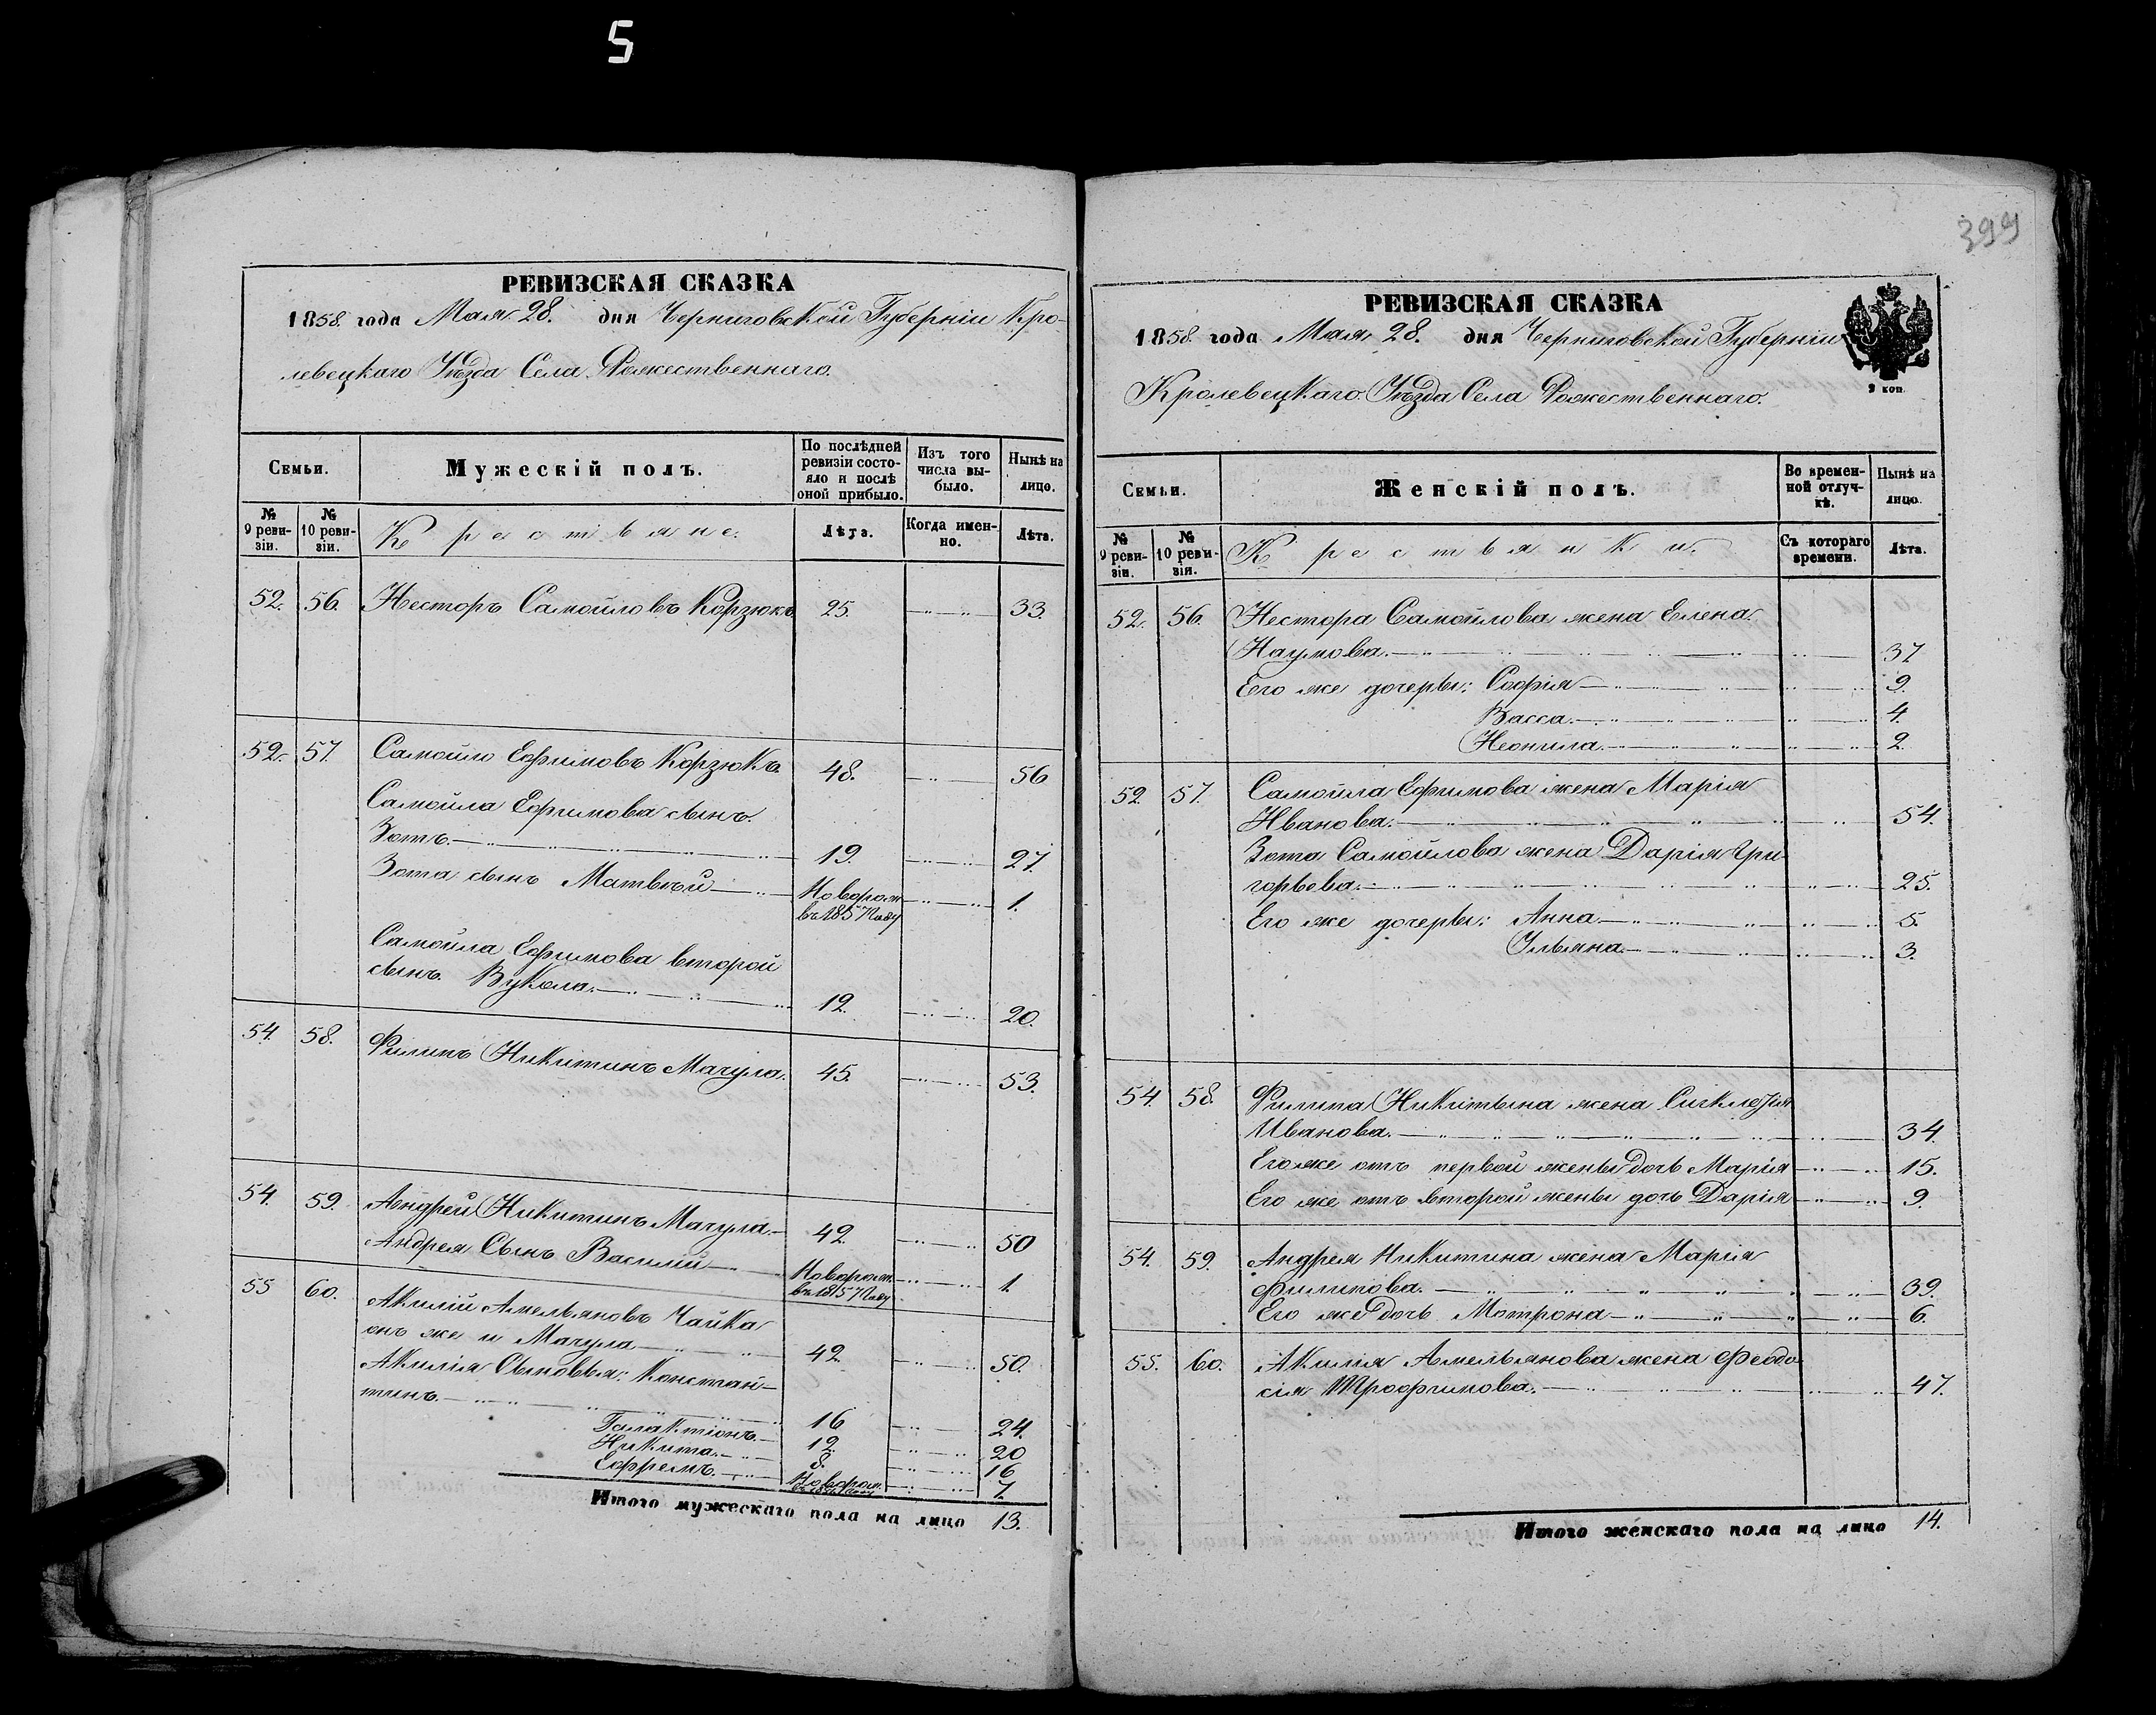 5
РЕВИЗСКАЯ СКАЗКА
1858. года Мая 28. дня Черниговской Губерніи Кро-
левецкаго Уѣзда Села Рожественнаго.
Семьи. Мужескій полъ. По послѣдней ревизіи состояло и послѣ оной прибыло. Изъ того числа выбыло. Нынѣ на лицо.
№ 9 ревизіи. № 10 ревизіи. Крестьяне. Лѣта. Когда именно. Лѣта.
52. 56. Несторъ Самойловъ Корзюкъ 25. 33.
52. 57. Самойло Ефимовъ Корзюкъ. 48. 56
Самойла Ефимова сынъ.
Зотъ. 19. 27.
Зота сынъ Матвѣй Новорож. 1.
въ 1857 году
Самойла Ефимова второй
сынъ. Вукола. 12. 20.
54. 58. Филипъ Никитинъ Мачула. 45. 53.
54. 59. Андрей Никитинъ Мачула. 42. 50
Андрея Сынъ Василий Новорож. 1.
въ 1857 году
55 60. Акилій Амельяновъ Чайка
онъ же и Мачула 42. 50.
Акилія Сыновья: Констан-
тинъ. 16 24.
Галактіонъ. 12. 20
Никита. 8. 16
Ефремъ. Новорож. 7.
Итого мужескаго пола на лицо 13.
399
РЕВИЗСКАЯ СКАЗКА
1858. года Мая 28. дня Черниговской Губерніи
Кролевецкаго Уѣзда Села Рожественнаго.
9 коп.
Семьи. Женскій полъ. Во временной отлучкѣ. Нынѣ на лицо.
№ 9 ревизіи. № 10 ревизіи. Крестьянки. Съ котораго времени. Лѣта.
52. 56. Нестора Самойлова жена Елена
Наумова. 37
Его же дочеры: Софія 9.
Васса. 4.
Неонила. 2.
52. 57. Самойла Ефимова жена Марія
Иванова. 54.
Зота Самойлова жена Дарія Гри-
горьева. 25.
Его же дочеры: Анна. 5.
Ульяна. 3.
54. 58. Филипа Никитына жена
Иванова. 34.
Его же отъ первой жены дочь Марія 15.
Его же отъ второй жены дочь Дарія 9.
54. 59. Андрея Никитина жена Марія
Филипова. 39.
Его же дочь Мотрона 6.
55. 60. Акилія Амельянова жена Феодо-
сія Трофимова. 47.
Итого женскаго пола на лицо 14.